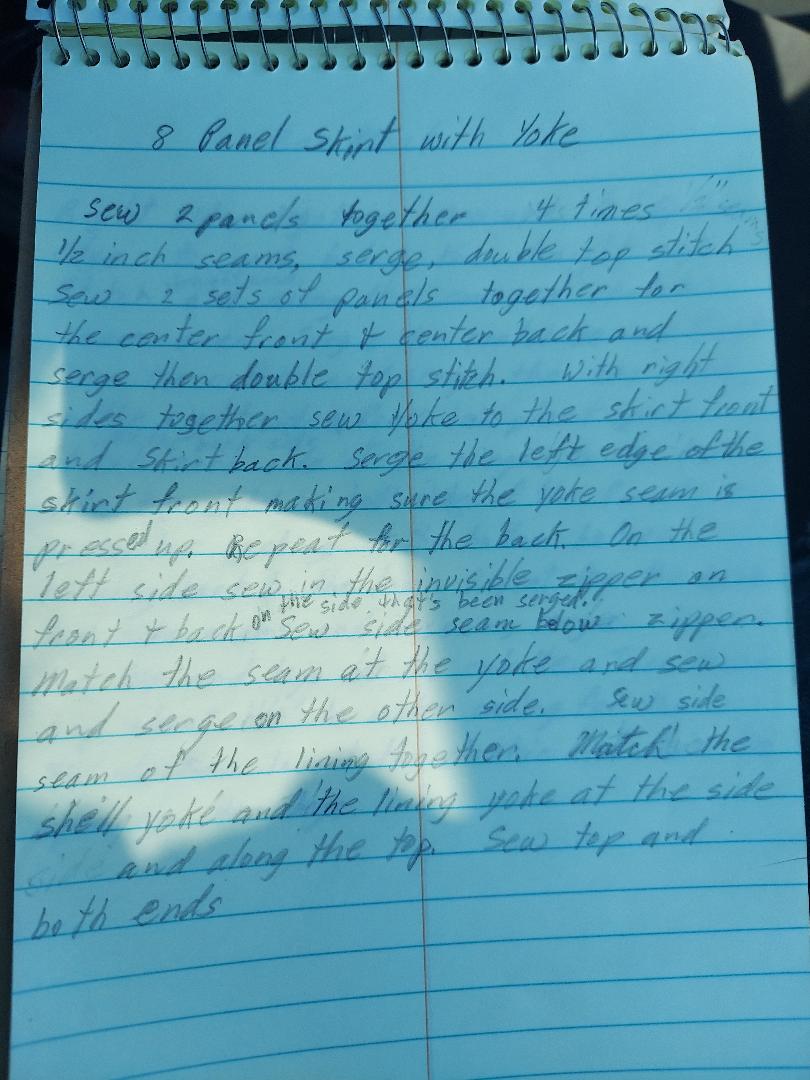 8 Panel Skirt with Yoke
Sew 2 panels together 4 times 1/2"
1/2 inch seams, serge, double top stitch
Sew 2 sets of panels together for
the center front & center back and
serge then double top stitch. With right
sides together sew Yoke to the skirt front
and Skirt back. Serge the left edge of the
skirt front making sure the yoke seam is
pressed up. Repeat for the back. On the
left side sew in the invisible zipper on
on the side that's been serged.
front & back Sew side seam below zipper.
Match the seam at the yoke and sew
and serge on the other side. Sew side
seam of the lining together. Match the
shell yoke and the lining yoke at the side
side and along the top. Sew top and
both ends